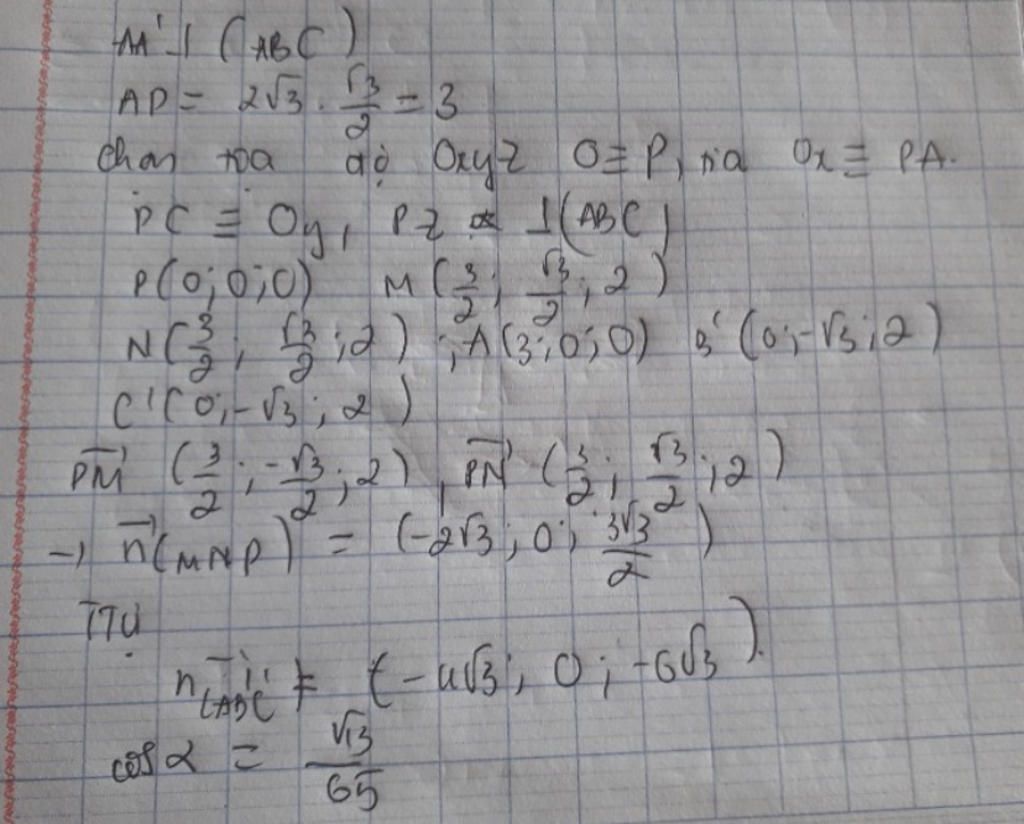 AA' ⊥ (ABC)
AP = 2√3 . √3/2 = 3
Chọn tọa độ Oxyz O ≡ P, tia Ox ≡ PA.
PC ≡ Oy, Pz ⊥ (ABC)
P(0;0;0) M(3/2; √3/2; 2)
N(3/2; √3/2; 2); A(3;0;0) B'(0;-√3;2)
C'(0;-√3; 2)
PM (3/2; -√3/2; 2), PN (3/2; √3/2; 2)
→ n(MNP) = (-2√3; 0; 3√3/2)
TTU
= (-4√3; 0; -6√3).
cos α = √13/65